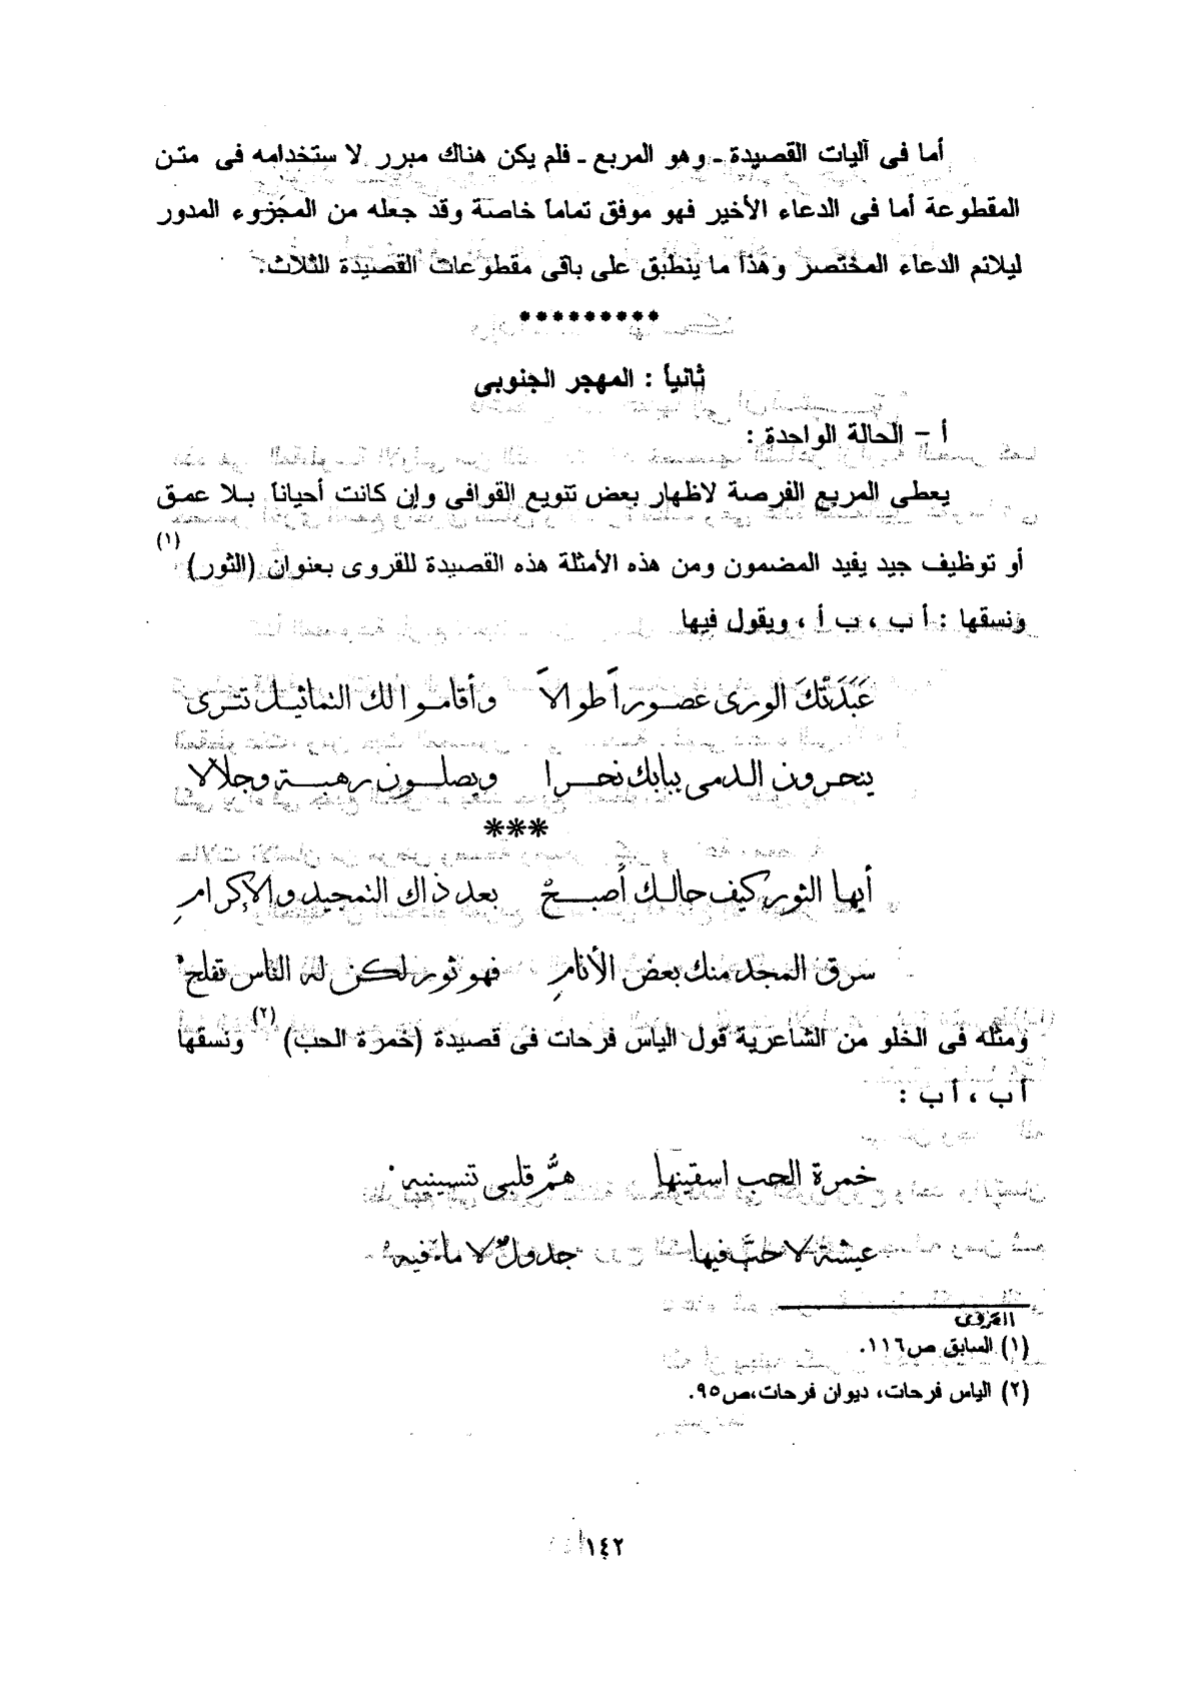 أما فى آليات القصيدة ـ وهو المربع ـ فلم يكن هناك مبرر لا ستخدامه فى متن
المقطوعة أما فى الدعاء الأخير فهو موفق تماماً خاصة وقد جعله من المجزوء المدور
ليلائم الدعاء المختصر وهذا ما ينطبق على باقى مقطوعات القصيدة الثلاث.
*********
ثانياً : المهجر الجنوبى
أ – الحالة الواحدة :
يعطى المربع الفرصة لاظهار بعض تنويع القوافى وإن كانت أحياناً بلا عمق
أو توظيف جيد يفيد المضمون ومن هذه الأمثلة هذه القصيدة للقروى بعنوان (الثور) (١)
ونسقها : أ ب ، ب أ ، ويقول فيها
عَبَدَتْكَ الورى عصوراً طوالاً وأقاموا لك التماثيل تترى
ينحرون الدمى ببابك نحرا ويصلون رهبة وجلالا
***
أيها الثور كيف حالك أصبحْ بعد ذاك التمجيد والإكرامِ
سرق المجد منك بعض الأنامِ فهو ثور لكن له الناس تفلحْ
ومثله فى الخلو من الشاعرية قول الياس فرحات فى قصيدة (خمرة الحب) (٢) ونسقها
أ ب ، أ ب :
خمرة الحب اسقينها همُّ قلبى تنسينيه
عيشة لا حبَّ فيها جدولٌ لا ماء فيه
القروى
(١) السابق ص١١٦.
(٢) الياس فرحات، ديوان فرحات،ص٩٥.
١٤٢